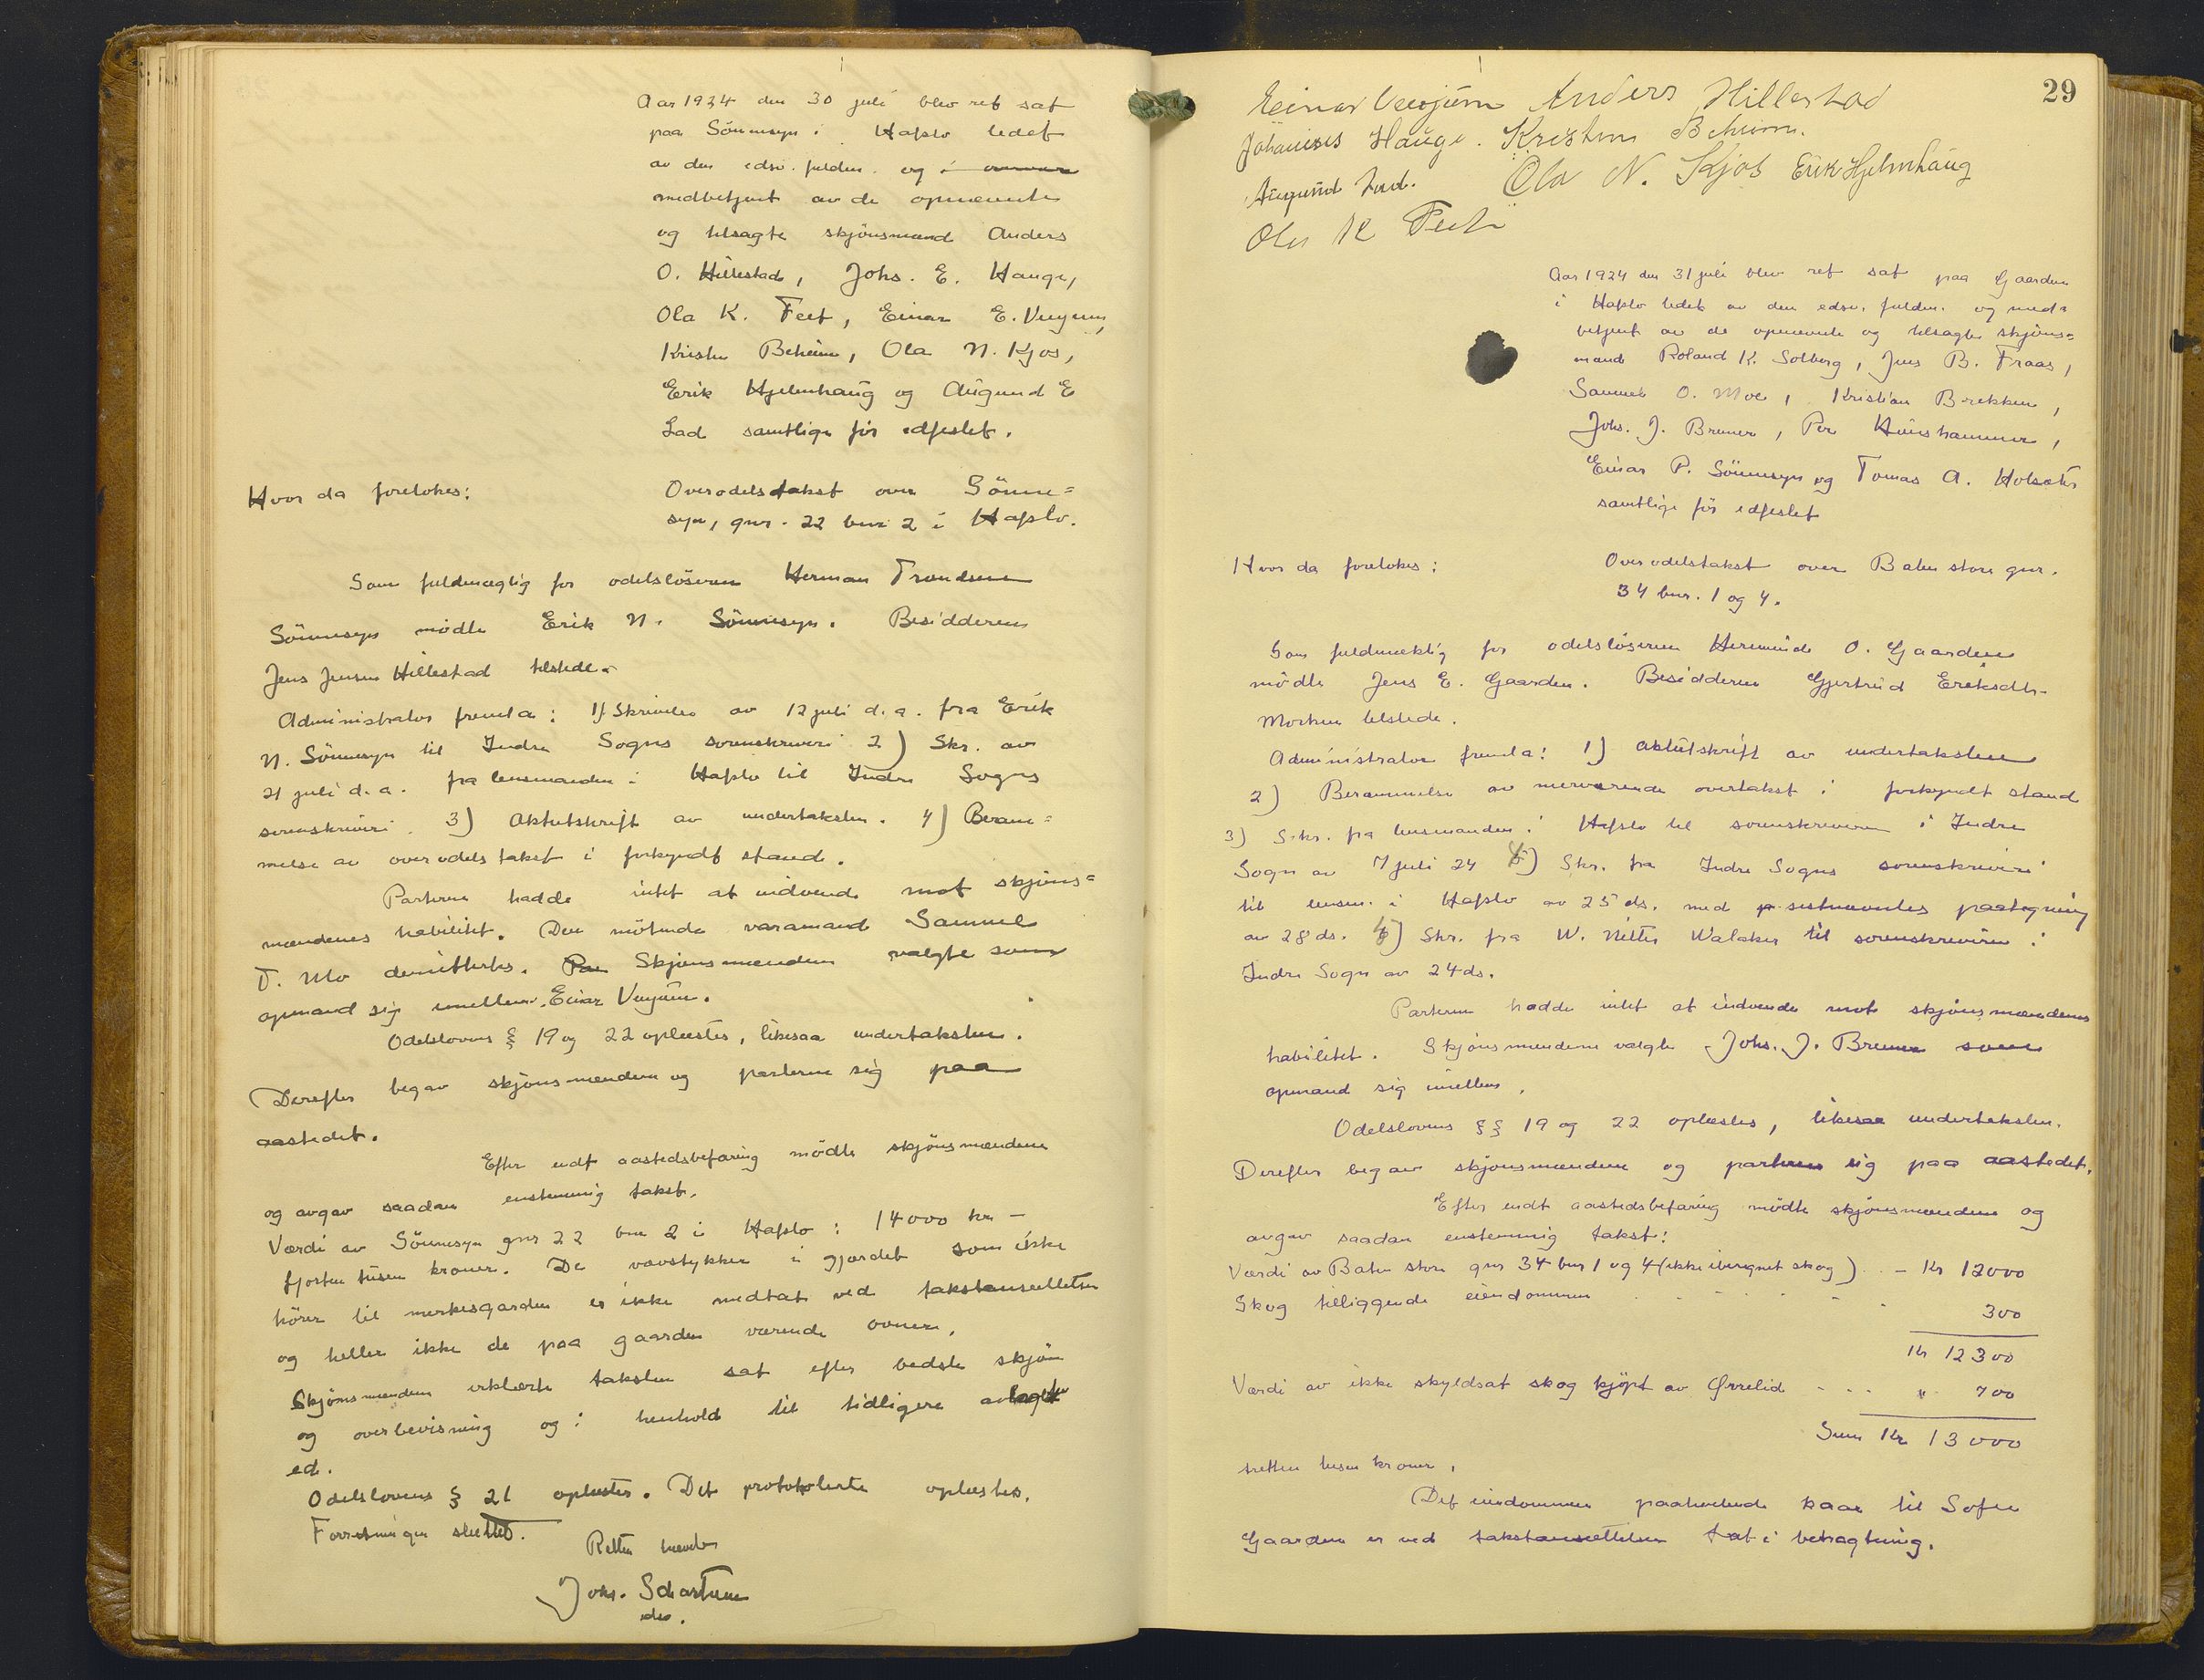 Aar 1924 den 30 juli blev ret sat
paa Sönnesyn i Hafslo ledet
av den edsv. fuldm. og i
medbetjent av de opnævnte
og tilsagte skjönsmænd Anders
O. Hillestad, Johs. E. Hauge,
Ola K. Feet, Einar E. Venjum,
Kristen Beheim, Ola N. Kjos,
Erik Hjelmhaug og Augund E
Lad samtlige för edfestet.
Hvor da foretokes:
Overodelstakst over Sönne=
syn, gnr. 22 bnr 2 i Hafslo.
Som fuldmægtig for odelslöseren Herman Trondsen
Sönnesyn mödte Erik N. Sönnesyn. Besidderen
Jens Jensen Hillestad tilstede.
Administrator fremla: 1) Skrivelse av 12 juli d.a. fra Erik
N. Sönnesyn til Indre Sogns sorenskriveri 2) Skr. av
21 juli d.a. fra lensmanden i Hafslo til Indre Sogns
sorenskriveri. 3) Aktutskrift av undertaksten. 4) Beram=
melse av overodelstakst i forkyndt stand.
Parterne hadde intet at indvende mot skjöns=
mændenes habilitet. Den mötende varamand Samuel
T. Mo demitteres. Skjönsmændene valgte som
opmand sig imellem. Einar Venjum.
Odelslovens § 19 og 22 oplæstes, likesaa undertaksten.
Derefter begav skjönsmændene og parterne sig paa
aastedet.
Efter endt aastedsbefaring mödte skjönsmændene
og avgav saadan enstemmig takst.
Værdi av Sönnesyn gnr 22 bnr 2 i Hafslo: 14000 kr -
fjorten tusen kroner. De vavstykker i gjærdet som ikke
hörer til merkesgarden er ikke medtat ved takstansættelsen
og heller ikke de paa gaarden værende ovner.
Skjönsmændene erklærte taksten sat efter bedste skjön
og overbevisning og i henhold til tidligere avlagte
ed.
Odelslovens § 21 oplæstes. Det protokolerte oplæstes.
Forretningen sluttet.
Retten hævet
Johs. Schartum
eds.
29
Einar Venjum Anders Hillestad
Johannes Hauge. Kristen Beheim.
Augund Lad. Ola N. Kjos Erik Hjelmhaug
Ola K Feet
Aar 1924 den 31 juli blev ret sat paa Gaarden
i Hafslo ledet av den edsv. fuldm. og med=
betjent av de opnævnte og tilsagte skjöns=
mænd Roland K. Solberg, Jens B. Fraas,
Samuel O. Moe, Kristian Brekken,
Johs. J. Bremer, Per Hünshammer,
Einar P. Sönnesyn og Tomas A. Holsæter
samtlige för edfestet
Hvor da foretokes:
Over odelstakst over Balen store gnr.
34 bnr. 1 og 4.
Som fuldmæktig for odelslöseren Hermunde O. Gaarden
mödte Jens E. Gaarden. Besidderen Gjertrud Eriksdtr.
Morken tilstede.
Administrator fremla: 1) Aktutskrift av undertaksten
2) Berammelse av nærværende overtakst i forkyndt stand
3) Skr. fra lensmanden i Hafslo til sorenskriveren i Indre
Sogn av 7 juli 24 4) Skr. fra Indre Sogns sorenskriveri
til lensm. i Hafslo av 25 ds. med sistnævntes paategning
av 28 ds. 5) Skr. fra W. Nitter Walaker til sorenskriveren i
Indre Sogn av 24 ds.
Parterne hadde intet at indvende mot skjönsmændenes
habilitet. Skjönsmændene valgte Johs. J. Bremer som
opmand sig imellem.
Odelslovens §§ 19 og 22 oplæstes, likesaa undertaksten.
Derefter begav skjönsmændene og parterne sig paa aastedet.
Efter endt aastedsbefaring mödte skjönsmændene og
avgav saadan enstemmig takst:
Værdi av Balen store gnr 34 bnr 1 og 4 (ikke iberegnet skog) - Kr 12000
Skog tilliggende eiendommen 300
Kr 12300
Værdi av ikke skyldsat skog kjöpt av Ørrelid - - - " 700
Sum Kr 13000
tretten tusen kroner.
Det eiendommen paahvilende kaar til Sofie
Gaarden er ved takstansættelsen tat i betragtning.